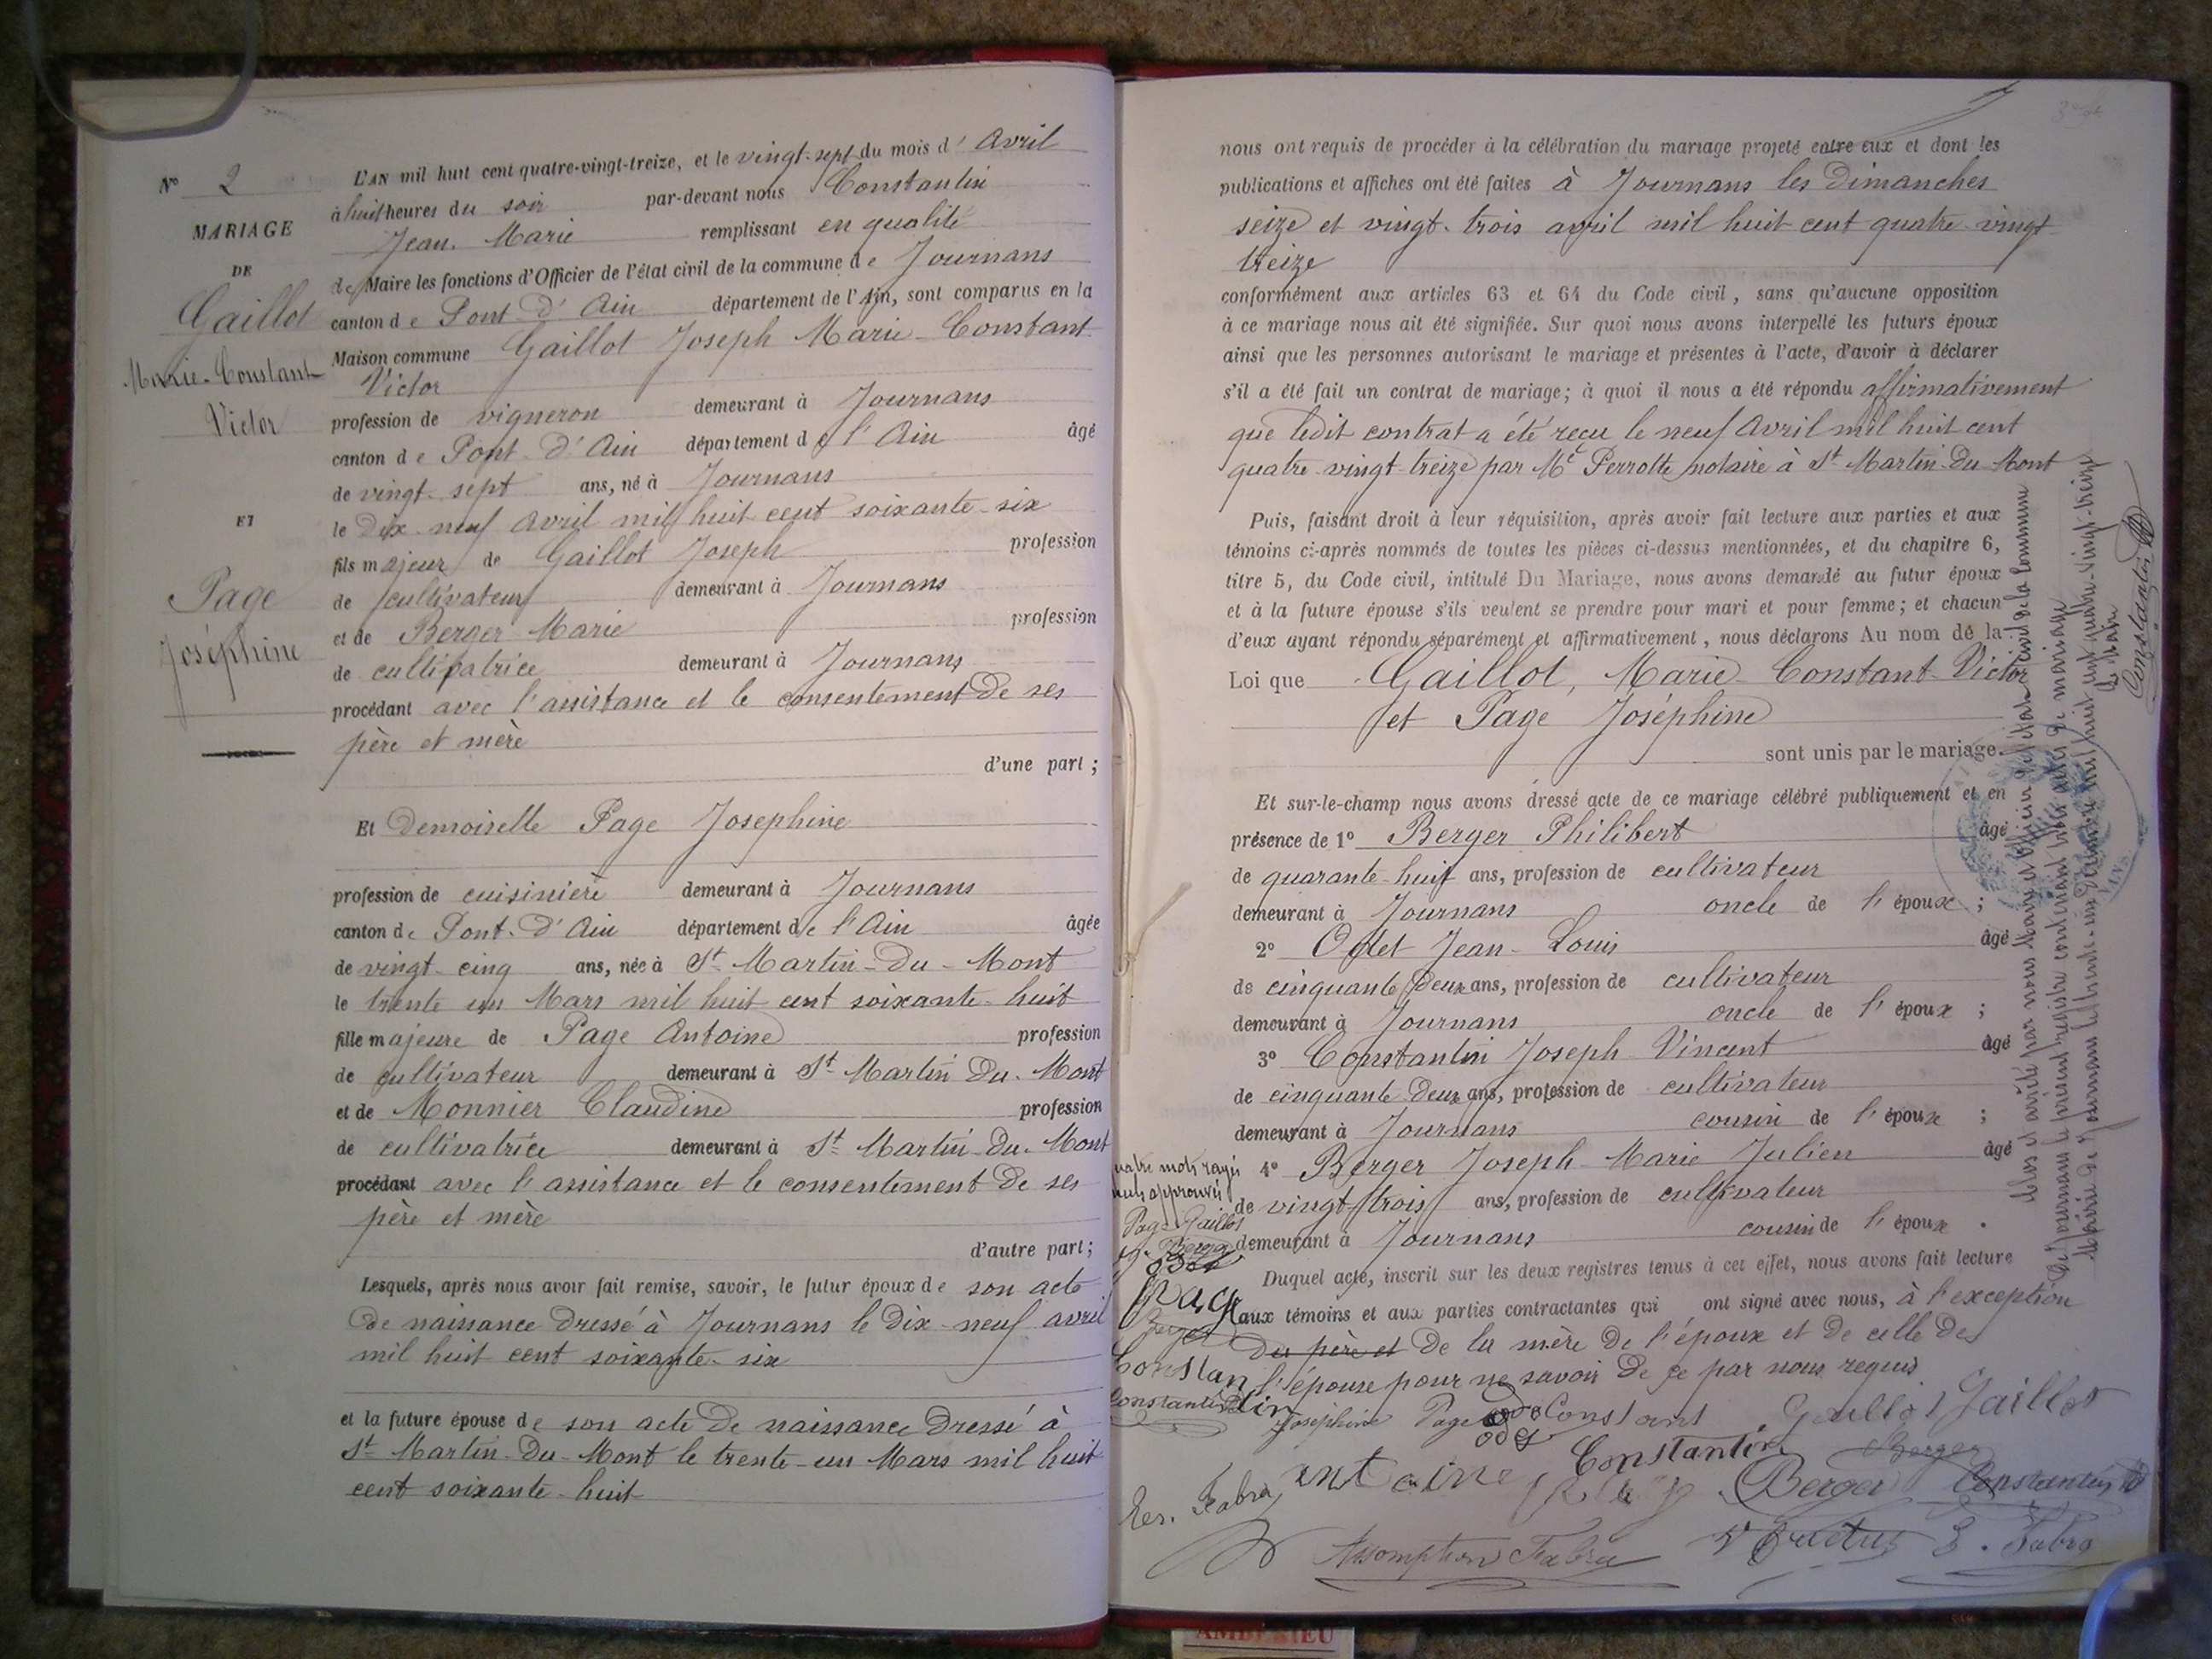 N° 2
MARIAGE
DE
Gaillot
Marie-Constant
Victor
ET
Page
Joséphine
L'AN mil huit cent quatre-vingt-treize, et le vingt-sept du mois d'Avril
à huit heures du soir par-devant nous Constantin
Jean-Marie remplissant en qualité
de Maire les fonctions d'Officier de l'état civil de la commune de Journans
canton de Pont d'Ain département de l'Ain, sont comparus en la
Maison commune Gaillot Joseph Marie-Constant
Victor
profession de vigneron demeurant à Journans
canton de Pont d'Ain département de l'Ain âgé
de vingt-sept ans, né à Journans
le Dix-neuf Avril mil huit cent soixante-six
fils majeur de Gaillot Joseph profession
de cultivateur demeurant à Journans
et de Berger Marie profession
de cultivatrice demeurant à Journans
procédant avec l'assistance et le consentement De ses
père et mère
d'une part;
Et Demoiselle Page Josephine
profession de cuisinière demeurant à Journans
canton de Pont-d'Ain département de l'Ain âgée
de vingt-cinq ans, née à St-Martin-Du-Mont
le trente un Mars mil huit cent soixante-huit
fille majeure de Page Antoine profession
de cultivateur demeurant à St-Martin Du-Mont
et de Monnier Claudine profession
de cultivatrice demeurant à St-Martin-Du-Mont
procédant avec l'assistance et le consentement De ses
père et mère
d'autre part;
Lesquels, après nous avoir fait remise, savoir, le futur époux de son acte
De naissance Dressé à Journans le Dix-neuf avril
mil huit cent soixante-six
et la future épouse de son acte De naissance Dressé à
St-Martin-Du-Mont le trente-un Mars mil huit
cent soixante-huit
nous ont requis de procéder à la célébration du mariage projeté entre eux et dont les
publications et affiches ont été faites à Journans les Dimanches
seize et vingt-trois avril mil huit cent quatre-vingt
treize
conformément aux articles 63 et 64 du Code civil, sans qu'aucune opposition
à ce mariage nous ait été signifiée. Sur quoi nous avons interpellé les futurs époux
ainsi que les personnes autorisant le mariage et présentes à l'acte, d'avoir à déclarer
s'il a été fait un contrat de mariage; à quoi il nous a été répondu affirmativement
que ledit contrat a été reçu le neuf Avril mil huit cent
quatre-vingt-treize par Me Perrotte notaire à St Martin-Du-Mont
Puis, faisant droit à leur réquisition, après avoir fait lecture aux parties et aux
témoins ci-après nommés de toutes les pièces ci-dessus mentionnées, et du chapitre 6,
titre 5, du Code civil, intitulé Du Mariage, nous avons demandé au futur époux
et à la future épouse s'ils veulent se prendre pour mari et pour femme; et chacun
d'eux ayant répondu séparément et affirmativement, nous déclarons Au nom de la
Loi que Gaillot, Marie-Constant-Victor
et Page Joséphine
sont unis par le mariage.
Et sur-le-champ nous avons dressé acte de ce mariage célébré publiquement et en
présence de 1° Berger Philibert âgé
de quarante-huit ans, profession de cultivateur
demeurant à Journans oncle de l'époux;
2° Odet Jean-Louis âgé
de cinquante Deux ans, profession de cultivateur
demeurant à Journans oncle de l'époux;
3° Constantin Joseph Vincent âgé
de cinquante-Deux ans, profession de cultivateur
demeurant à Journans cousin de l'époux;
4° Berger Joseph-Marie Julien âgé
de vingt-trois ans, profession de cultivateur
demeurant à Journans cousin de l'époux.
Duquel acte, inscrit sur les deux registres tenus à cet effet, nous avons fait lecture
aux témoins et aux parties contractantes qui ont signé avec nous, à l'exception
Du père et De la mère De l'époux et De celle De
l'épouse pour ne savoir De ce par nous requis
quatre mots rayés
nuls approuvés
Page Gaillot
Berger
Page
Berger
Constantin
Constantin
Joséphine Page Constant Gaillot Gaillot
Odet
Constantin Berger
antoine Page Berger Constantin
Fabra
Assomption Fabra
E. Fabra
Clos et arrêté par nous Maire officier de l'état civil de la Commune
De Journans le présent registre contenant trois actes De mariage
Mairie De Journans le trente-un Décembre mil huit cent quatre-vingt-treize
Le Maire
Constantin
AMBERIEU